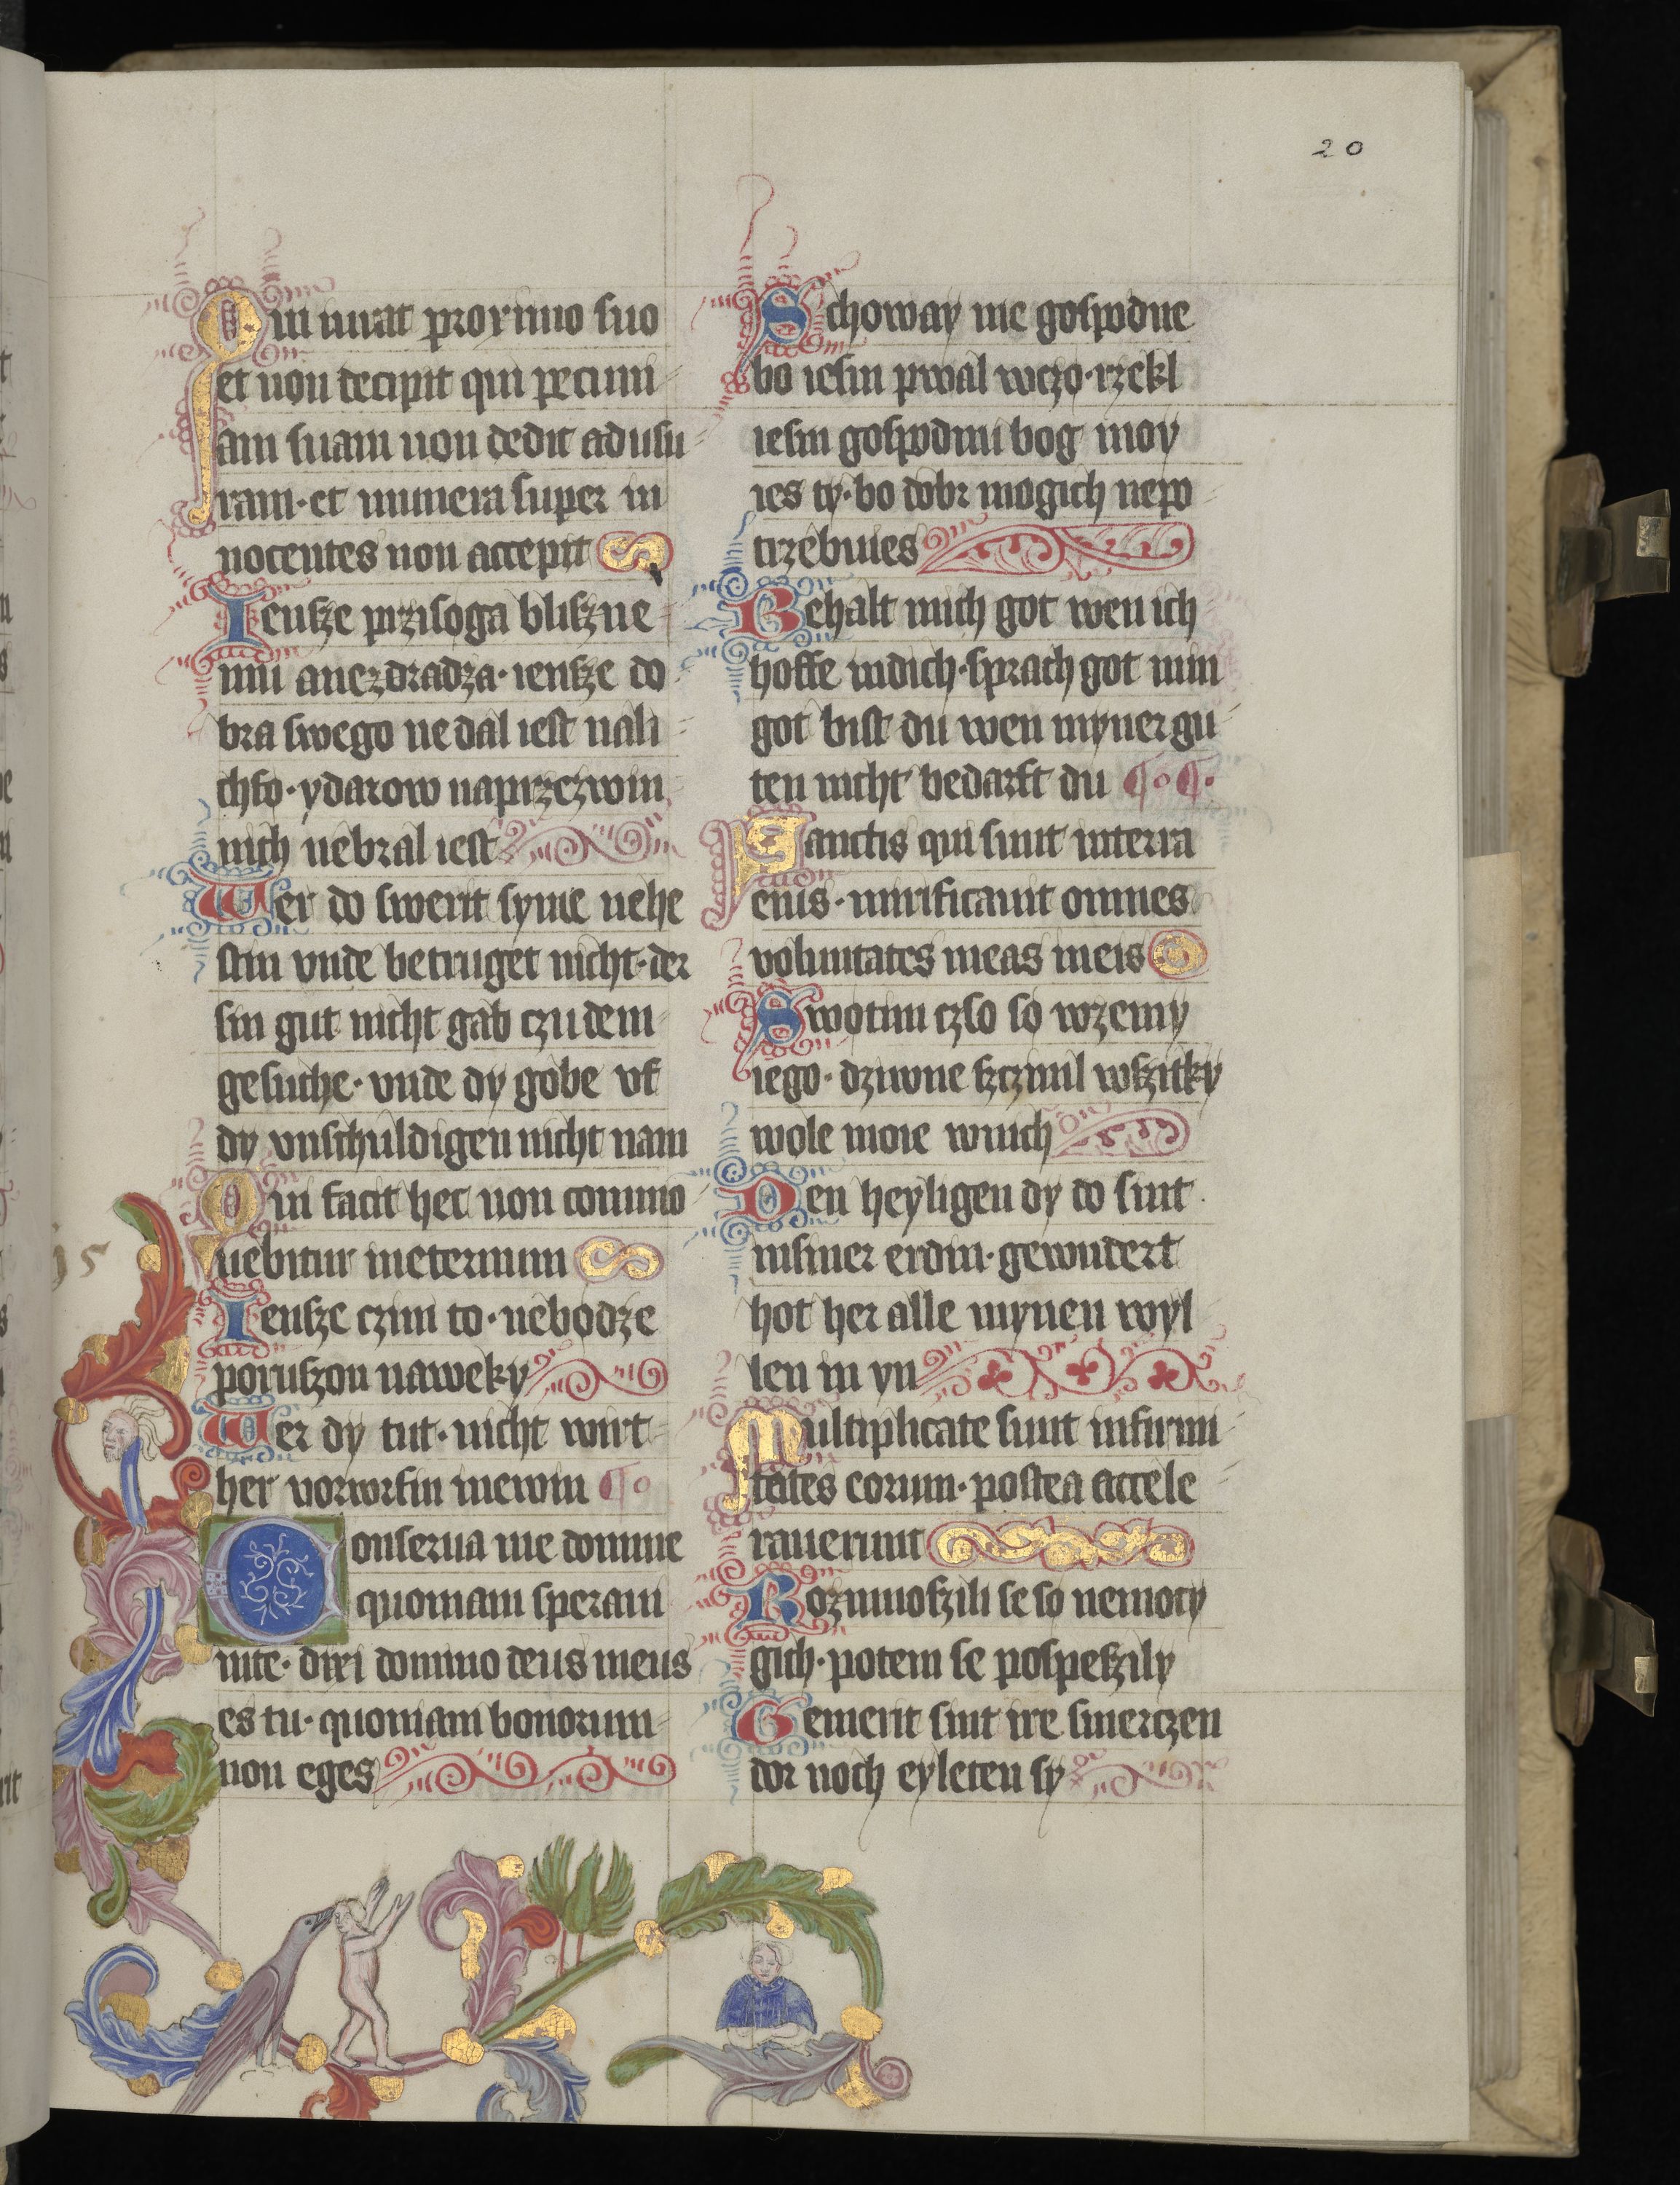 20
Qui iurat proximo suo
et non decipit qui pecuni
am suam non dedit ad usu
ram · et munera super in
nocentes non accepit
Iensze przisoga bliszne
mu a nezdradza · iensze do
bra swego ne dal iest na li
chfo · y darow na przezwin
nich nebral iest
Wer do swerit syme nehe
stin vnde betruget nicht · der
sin gut nicht gab czu dem
gesuche · vnde dy gobe vf
dy vnschuldigen nicht nam
Qui facit hec non commo
uebitur in eternum
Iensze czini to · nebodze
poruszon na weky
Wer dy tut · nicht wirt
her vorworfin in ewin
Conserua me domine
quoniam speraui
in te · dixi domino deus meus
es tu · quoniam bonorum
non eges
Schoway me gospodne
bo iesm pwal w czo · rzekl
iesm gospodnu bog moy
ies ty · bo dobr mogich nepo
trzebuies
Behalt mich got wen ich
hoffe in dich · sprach got min
got bist du wen myner gu
ten nicht bedarft du
Sanctis qui sunt in terra
eius · mirificauit omnes
voluntates meas in eis
Swotim czso so w zemy
iego · dziwne szczinil wszitky
wole moie w nich
Den heyligen dy do sint
in siner erdin · gewndert
hot her alle mynen wyl
len in yn
Multiplicate sunt infirmi
tates eorum · postea accele
rauerunt
Rozmnoszili se so nemocy
gich · potem se pospeszily
Gemerit sint ire smerczen
dor noch eyleten sy